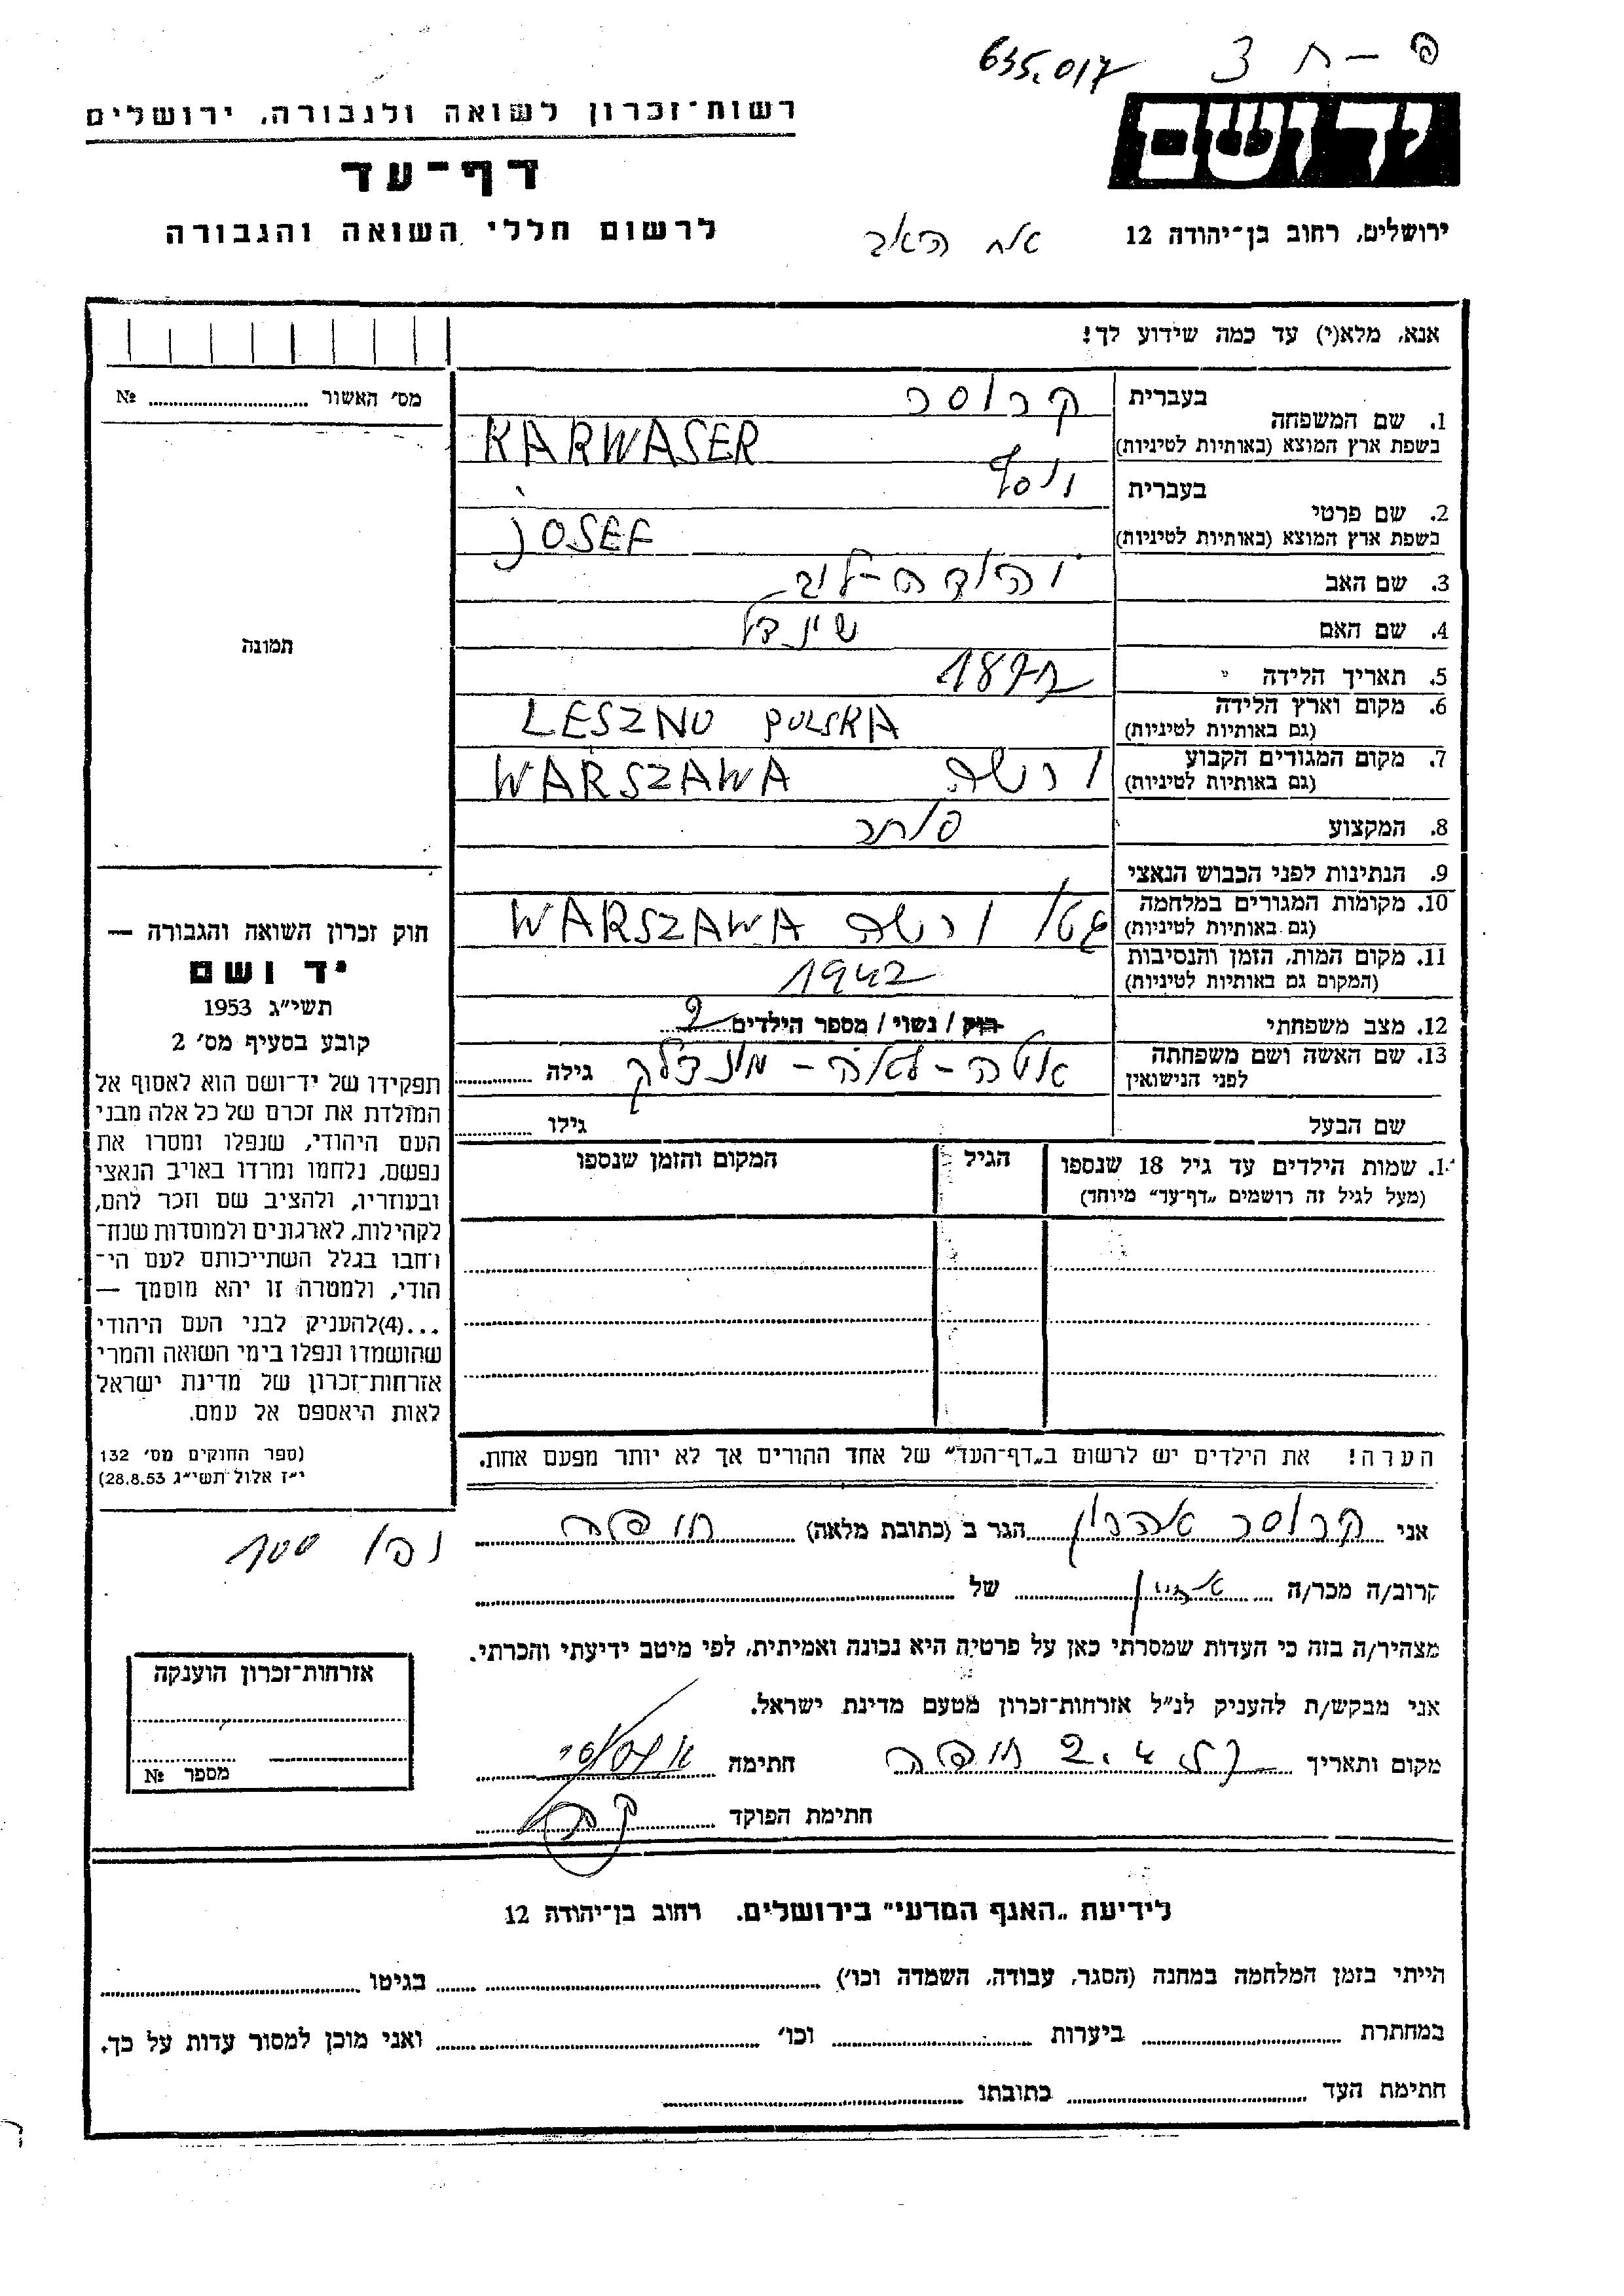 פ - ח 3
635.017
יד ושם
רשות־זכרון לשואה ולגבורה, ירושלים
דף־עד
לרשום חללי השואה והגבורה
ירושלים, רחוב בן־יהודה 12
אח האב
אנא, מלא(י) עד כמה שידוע לך!
מס׳ האשור № ........
1. שם המשפחה
בעברית
קרוסר
בשפת ארץ המוצא (באותיות לטיניות)
KARWASER
2. שם פרטי
בעברית
יוסף
בשפת ארץ המוצא (באותיות לטיניות)
JOSEF
3. שם האב
יהודה-לוב
4. שם האם
שינדל
5. תאריך הלידה
6. מקום וארץ הלידה
(גם באותיות לטיניות)
LESZNO POLSKA
7. מקום המגורים הקבוע
(גם באותיות לטיניות)
ורשה WARSZAWA
8. המקצוע
סוחר
9. הנתינות לפני הכבוש הנאצי
10. מקומות המגורים במלחמה
(גם באותיות לטיניות)
גטו ורשה WARSZAWA
11. מקום המות, הזמן והנסיבות
(המקום גם באותיות לטיניות)
1942
12. מצב משפחתי
רווק / נשוי / מספר הילדים 2
13. שם האשה ושם משפחתה
לפני הנישואין
אטה-לאה- מונדלק גילה ........
שם הבעל גילו ........
1. שמות הילדים עד גיל 18 שנספו
(מעל לגיל זה רושמים „דף־עד״ מיוחד)
הגיל
המקום והזמן שנספו
הערה! את הילדים יש לרשום ב„דף־העד״ של אחד ההורים אך לא יותר מפעם אחת.
תמונה
חוק זכרון השואה והגבורה —
יד ושם
תשי״ג 1953
קובע בסעיף מס׳ 2
תפקידו של יד־ושם הוא לאסוף אל
המולדת את זכרם של כל אלה מבני
העם היהודי, שנפלו ומסרו את
נפשם, נלחמו ומרדו באויב הנאצי
ובעוזריו, ולהציב שם וזכר להם,
לקהילות, לארגונים ולמוסדות שנח־
רחבו בגלל השתייכותם לעם הי־
הודי, ולמטרה זו יהא מוסמך —
...(4)להעניק לבני העם היהודי
שהושמדו ונפלו בימי השואה והמרי
אזרחות־זכרון של מדינת ישראל
לאות היאספם אל עמם.
(ספר החוקים מס׳ 132
י״ז אלול תשי״ג 28.8.53)
אני קרוסר אהרון הגר ב (כתובת מלאה) חיפה
קרוב/ה מכר/ה אחיין של ........
מצהיר/ה בזה כי העדות שמסרתי כאן על פרטיה היא נכונה ואמיתית, לפי מיטב ידיעתי והכרתי.
אני מבקש/ת להעניק לנ״ל אזרחות־זכרון מטעם מדינת ישראל.
מקום ותאריך חיפה חתימה
חתימת הפוקד
אזרחות־זכרון הוענקה
מספר №
לידיעת „האגף המדעי״ בירושלים. רחוב בן־יהודה 12
הייתי בזמן המלחמה במחנה (הסגר, עבודה, השמדה וכו׳) ........ בגיטו ........
במחתרת ........ ביערות ........ וכו׳ ........ ואני מוכן למסור עדות על כך.
חתימת העד ........ כתובתו ........